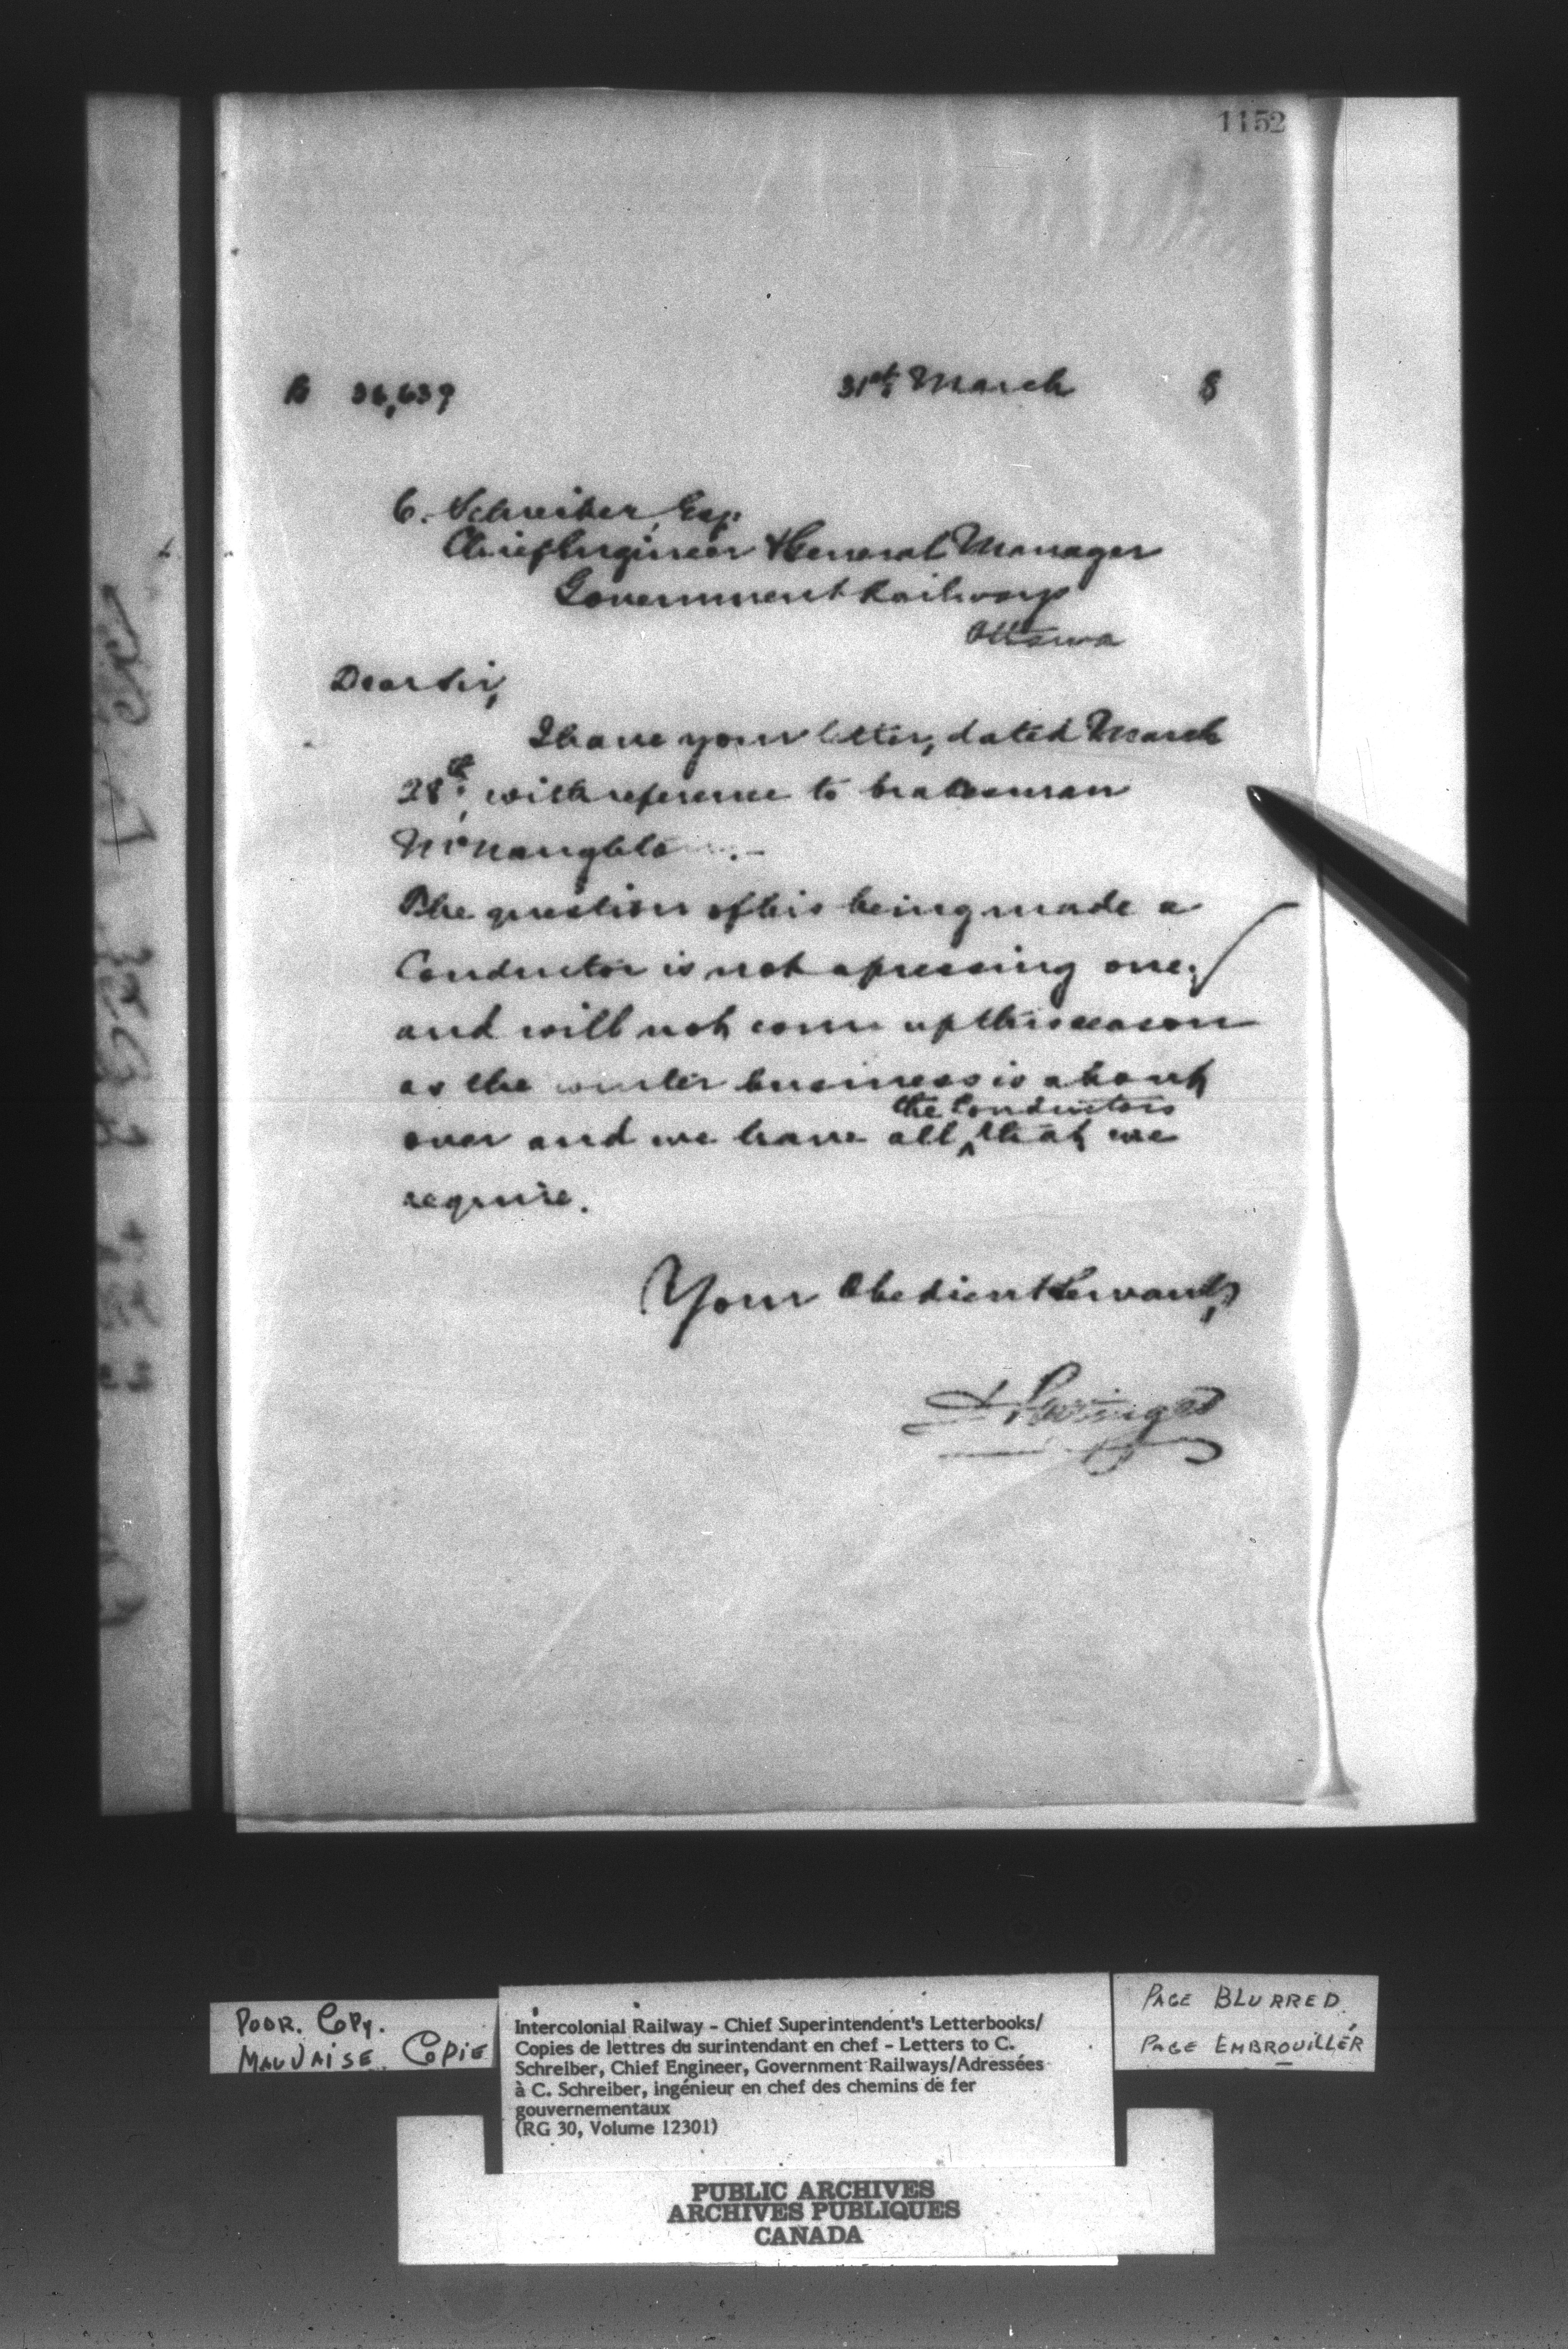 1152
31st March 8
C. Schreiber, Esq.
Chief Engineer & General Manager
Government Railways
Ottawa
Dear Sir,
I have your letter, dated March
28th, with reference to brakesman
McNaughton.-
The question of his being made a
Conductor is not a pressing one,
and will not come up this season
as the winter business is about
the Conductors
over and we have all ^ that we
require.
Your Obedient Servant,
D Pottinger
POOR. COPY.
MAUVAISE COPIE
Intercolonial Railway - Chief Superintendent's Letterbooks/
Copies de lettres du surintendant en chef - Letters to C.
Schreiber, Chief Engineer, Government Railways/Adressées
à C. Schreiber, ingénieur en chef des chemins de fer
gouvernementaux
(RG 30, Volume 12301)
PAGE BLURRED
PAGE EMBROUILLÉR
PUBLIC ARCHIVES
ARCHIVES PUBLIQUES
CANADA